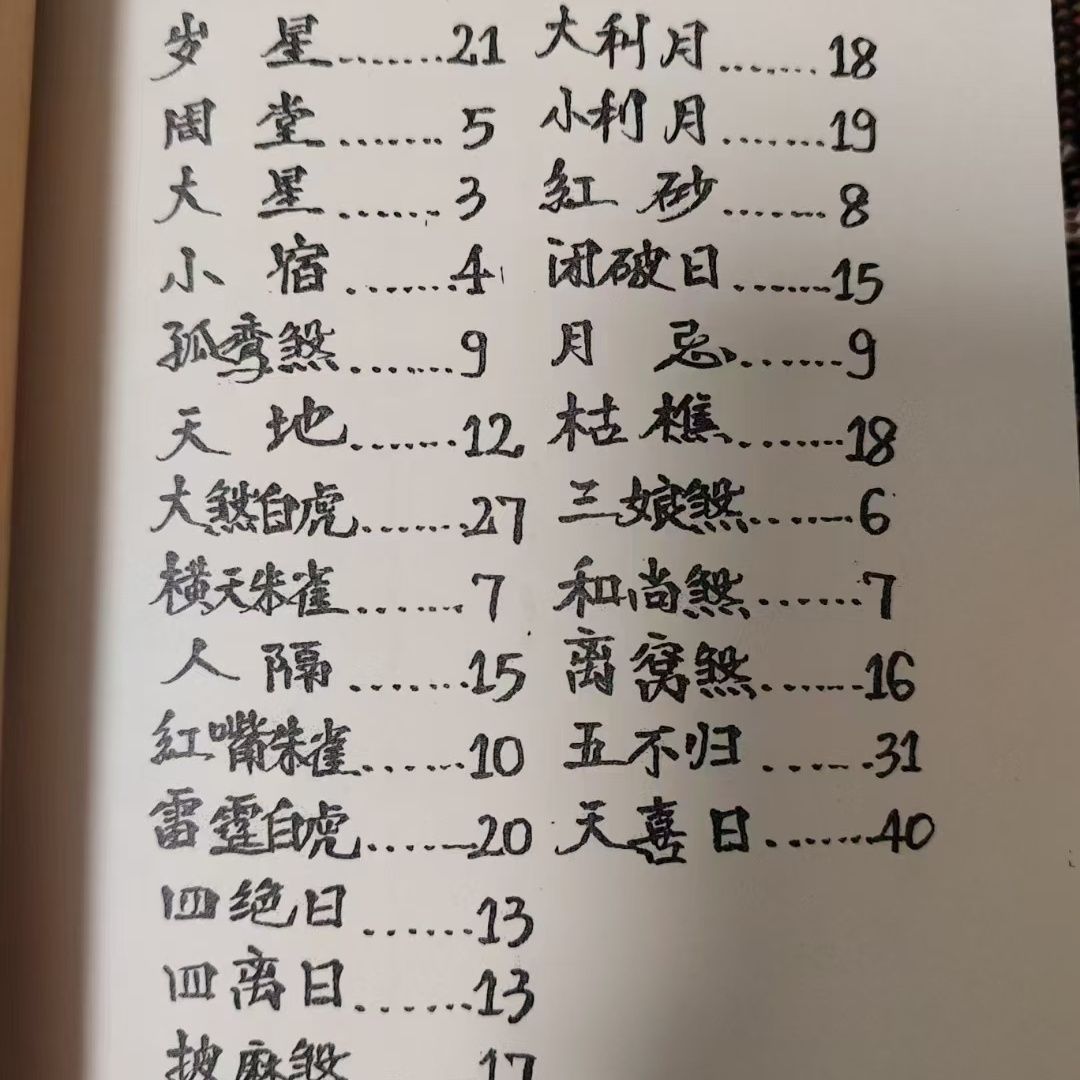 岁星.......21
周堂.......5
大星.......3
小宿.......4
孤寡煞.......9
天地.......12
大煞白虎.......27
横天朱雀.......7
人隔.......15
紅嘴朱雀.......10
雷霆白虎.......20
四绝日.......13
四离日.......13
披麻煞 17
大利月.......18
小利月.......19
紅砂.......8
闭破日.......15
月忌.......9
枯樵.......18
三娘煞.......6
和尚煞.......7
离窝煞.......16
五不归.......31
天喜日.......40